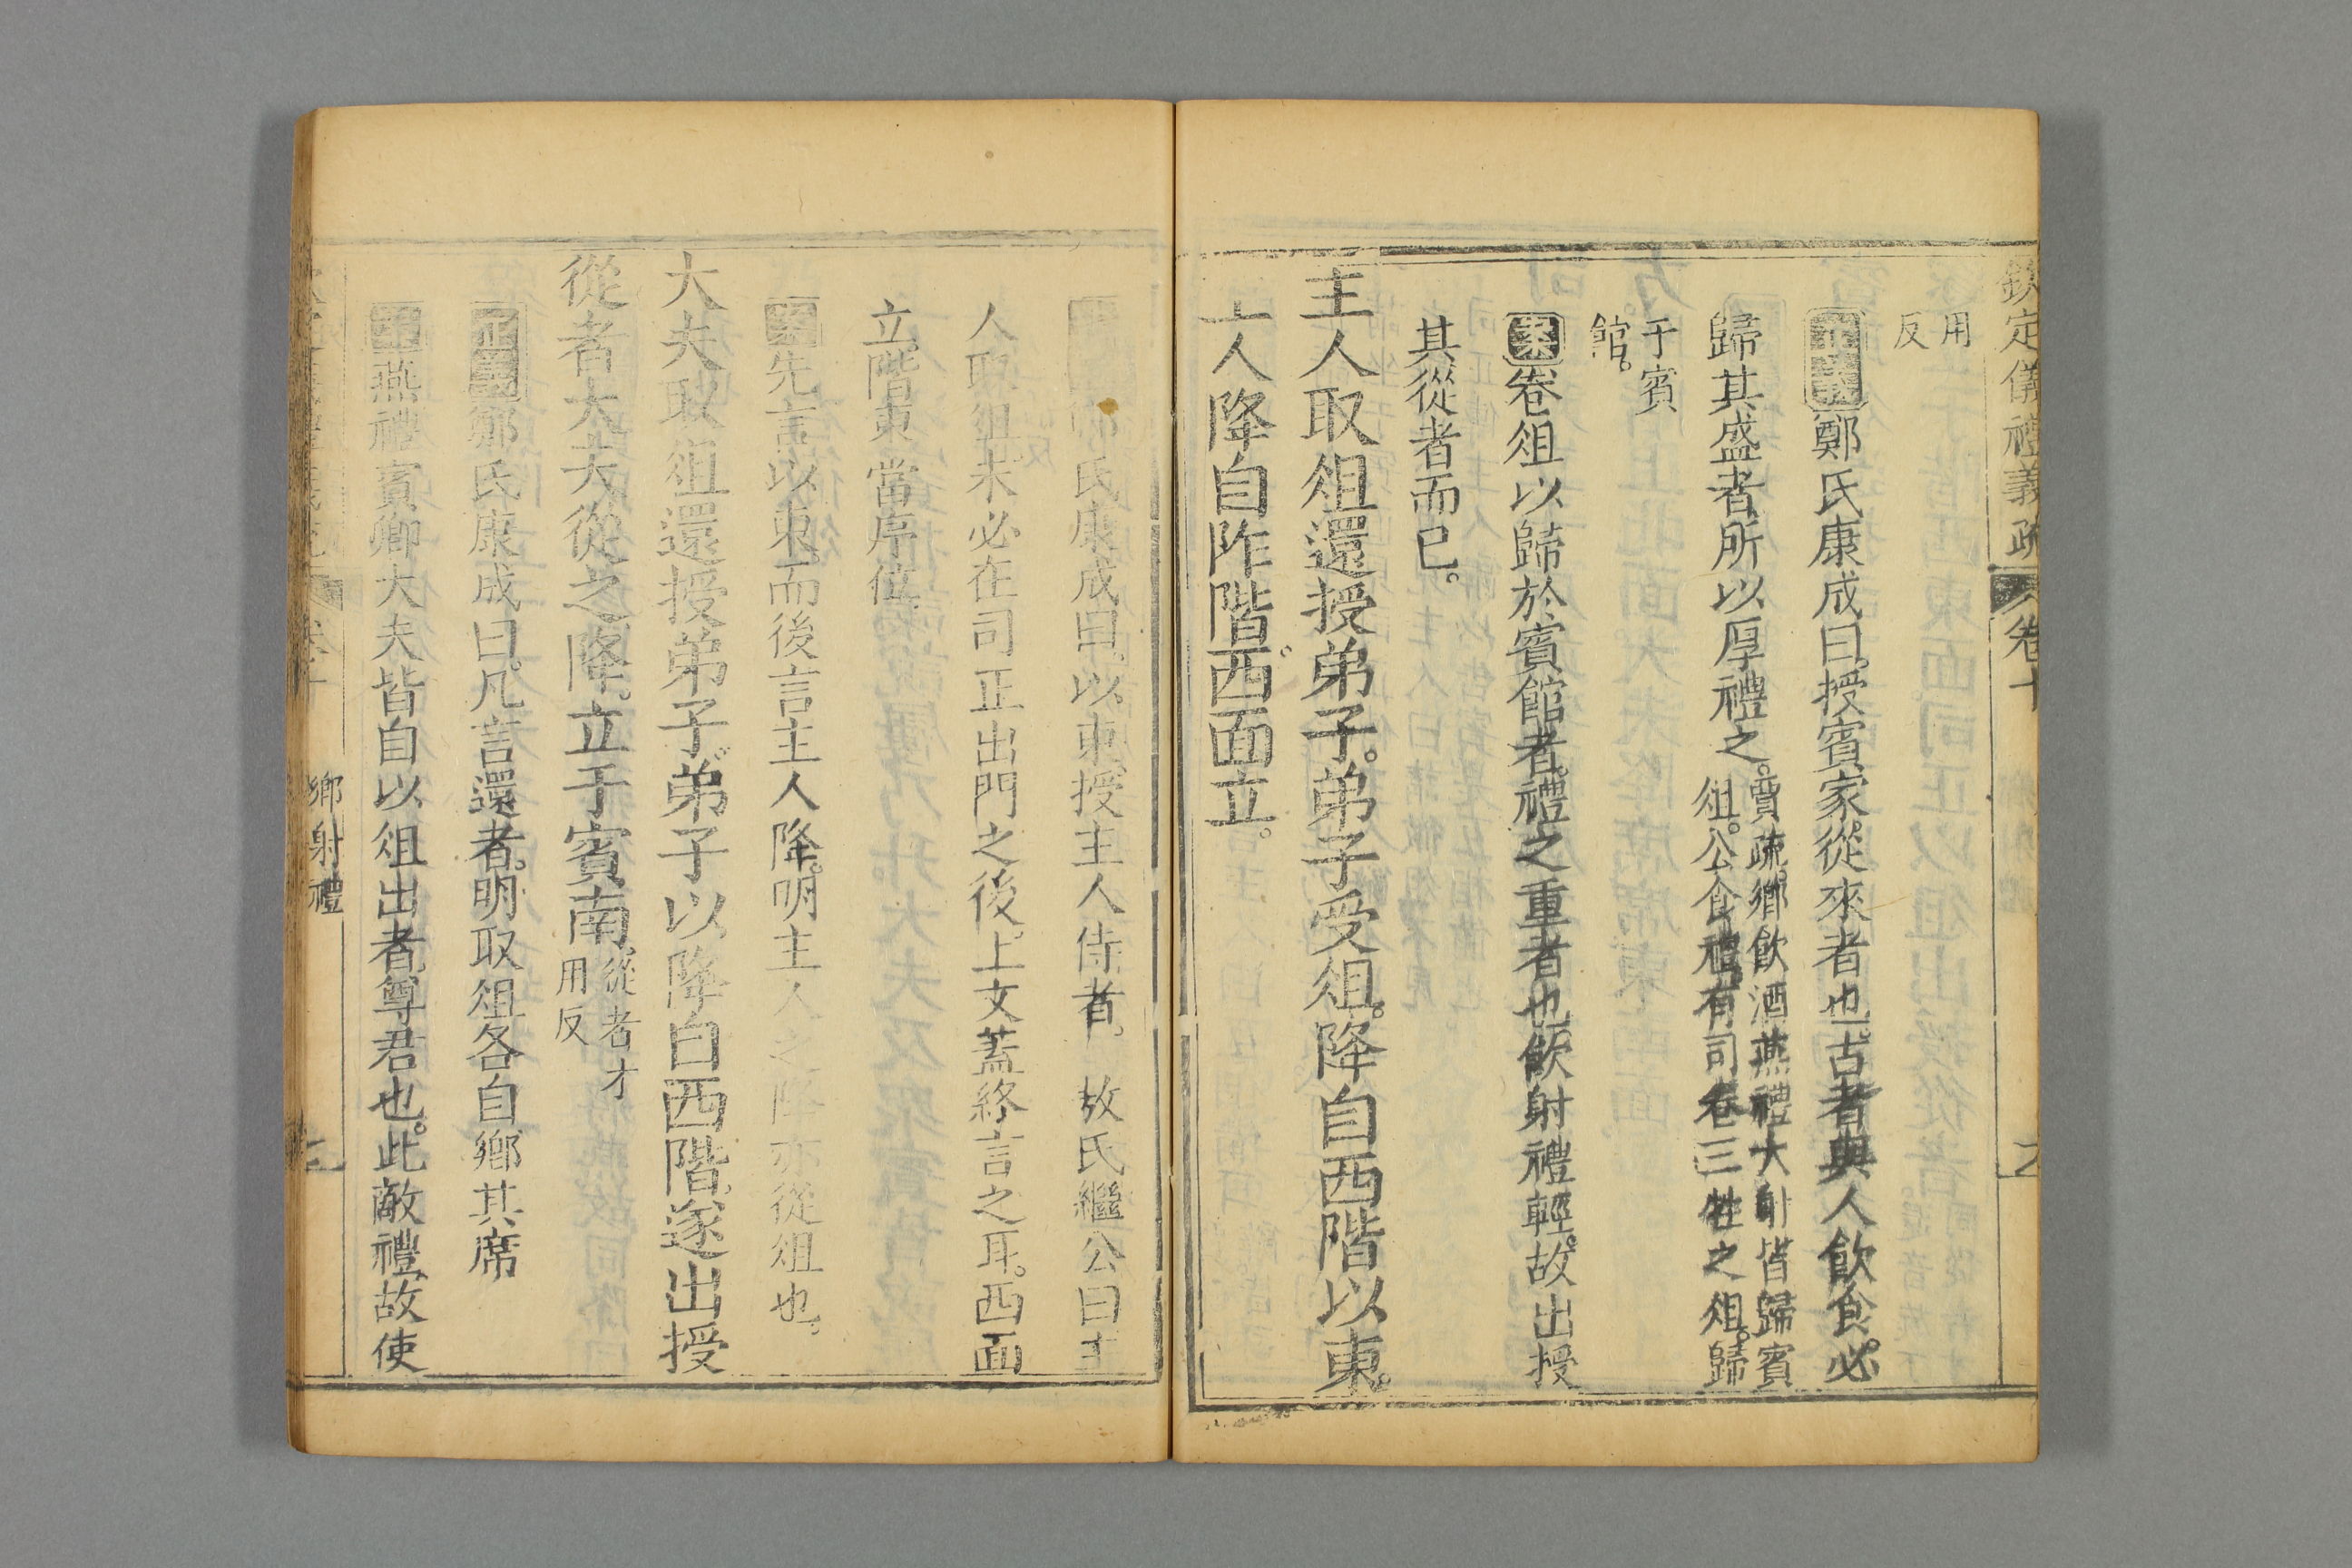 欽定儀禮義疏 卷十
用
反
正義鄭氏康成曰。授賓家從來者也。古者與人飲食。必
歸其盛者。所以厚禮之。賈疏。鄉飲酒燕禮大射皆歸賓
俎。公食禮。有司卷三牲之俎。歸
于賓
館。
案卷俎以歸於賓館者。禮之重者也。飲射禮輕。故出授
其從者而已。
主人取俎還授弟子。弟子受俎。降自西階以東。
人降自阼階。西面立。
氏康成曰。以東。授主人侍者。 敖氏繼公曰主
人取俎。未必在司正出門之後。上文蓋終言之耳。西面
立。階東當序位。
案先言以東。而後言主人降。明主人之降亦從俎也。
大夫取俎還授弟子。弟子以降自西階。遂出授
從者。大夫從之降。立于賓南。從者才
用反
正義鄭氏康成曰。凡言還者。明取俎各自鄉其席
燕禮賓卿大夫皆自以俎出者。尊君也。此敵禮。故使
鄉射禮